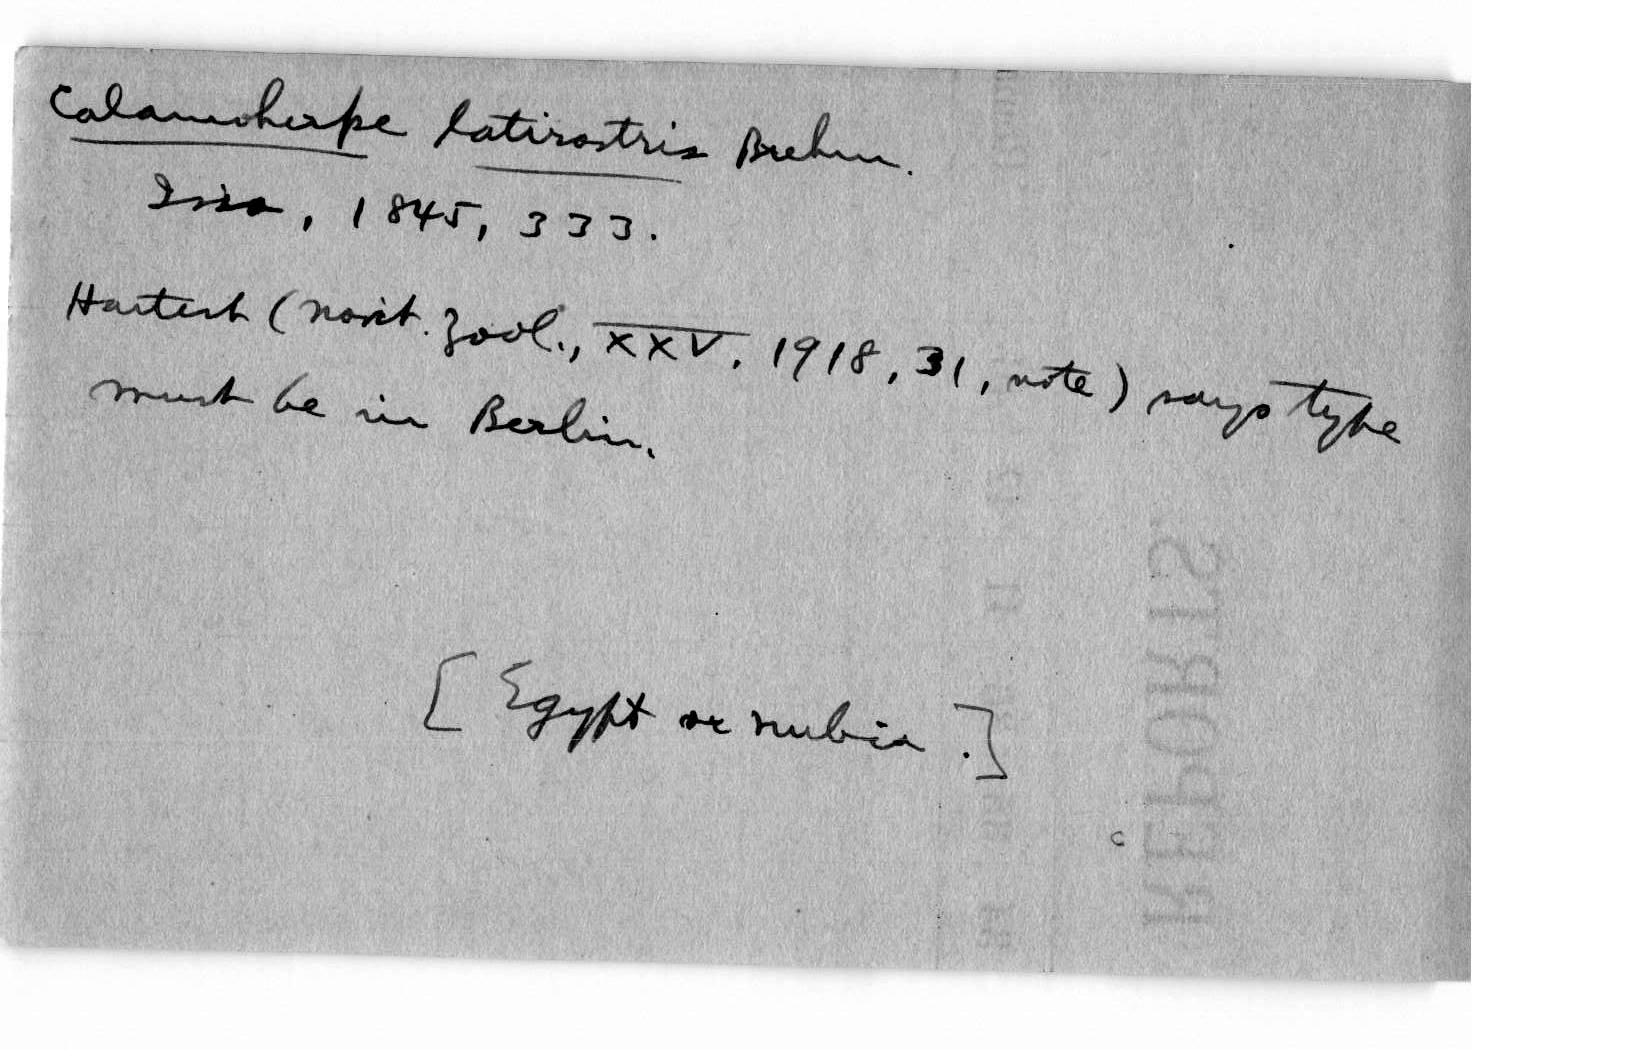 Calamoherpe latirostris Brehm.
Isis, 1845, 333.
Hartert (Novit. Zool., XXV, 1918, 31, note) says type
must be in Berlin.
[Egypt or Nubia.]
REPORTS